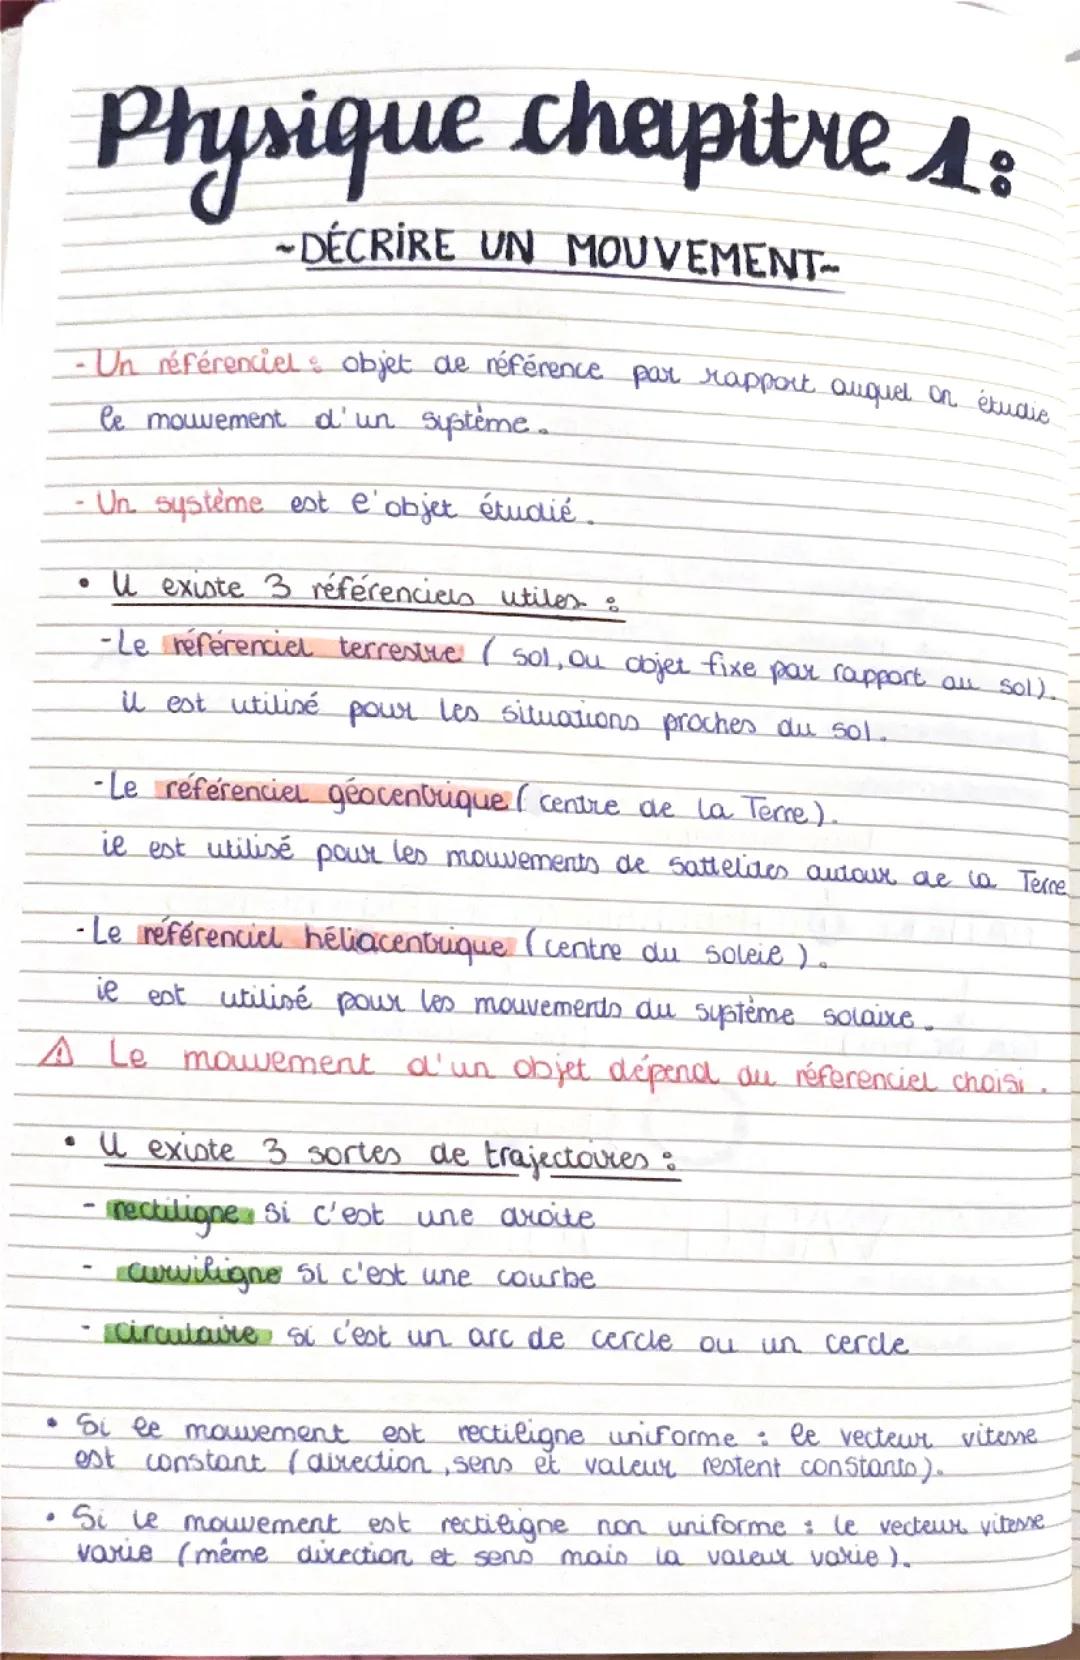 Physique chapitre 1:
~DÉCRIRE UN MOUVEMENT~
- Un référenciel : objet de référence par rapport auquel on étudie
le mouvement d'un système.
- Un système est l'objet étudié.
• Il existe 3 référenciels utiles :
-Le référenciel terrestre ( sol, ou objet fixe par rapport au sol).
il est utilisé pour les situations proches du sol.
-Le référenciel géocentrique ( centre de la Terre).
il est utilisé pour les mouvements de sattelides autour de la Terre
-Le référenciel héliacentrique (centre du soleil ).
il est utilisé pour les mouvements du système solaire.
⚠ Le mouvement d'un objet dépend du réferenciel choisi.
• Il existe 3 sortes de trajectoires :
- rectiligne si c'est une droite
- curviligne si c'est une courbe
- circulaire si c'est un arc de cercle ou un cercle
• Si le mouvement est rectiligne uniforme : le vecteur vitesse
est constant (direction, sens et valeur restent constants).
• Si le mouvement est rectiligne non uniforme : le vecteur vitesse
varie (même direction et sens mais la valeur varie ).